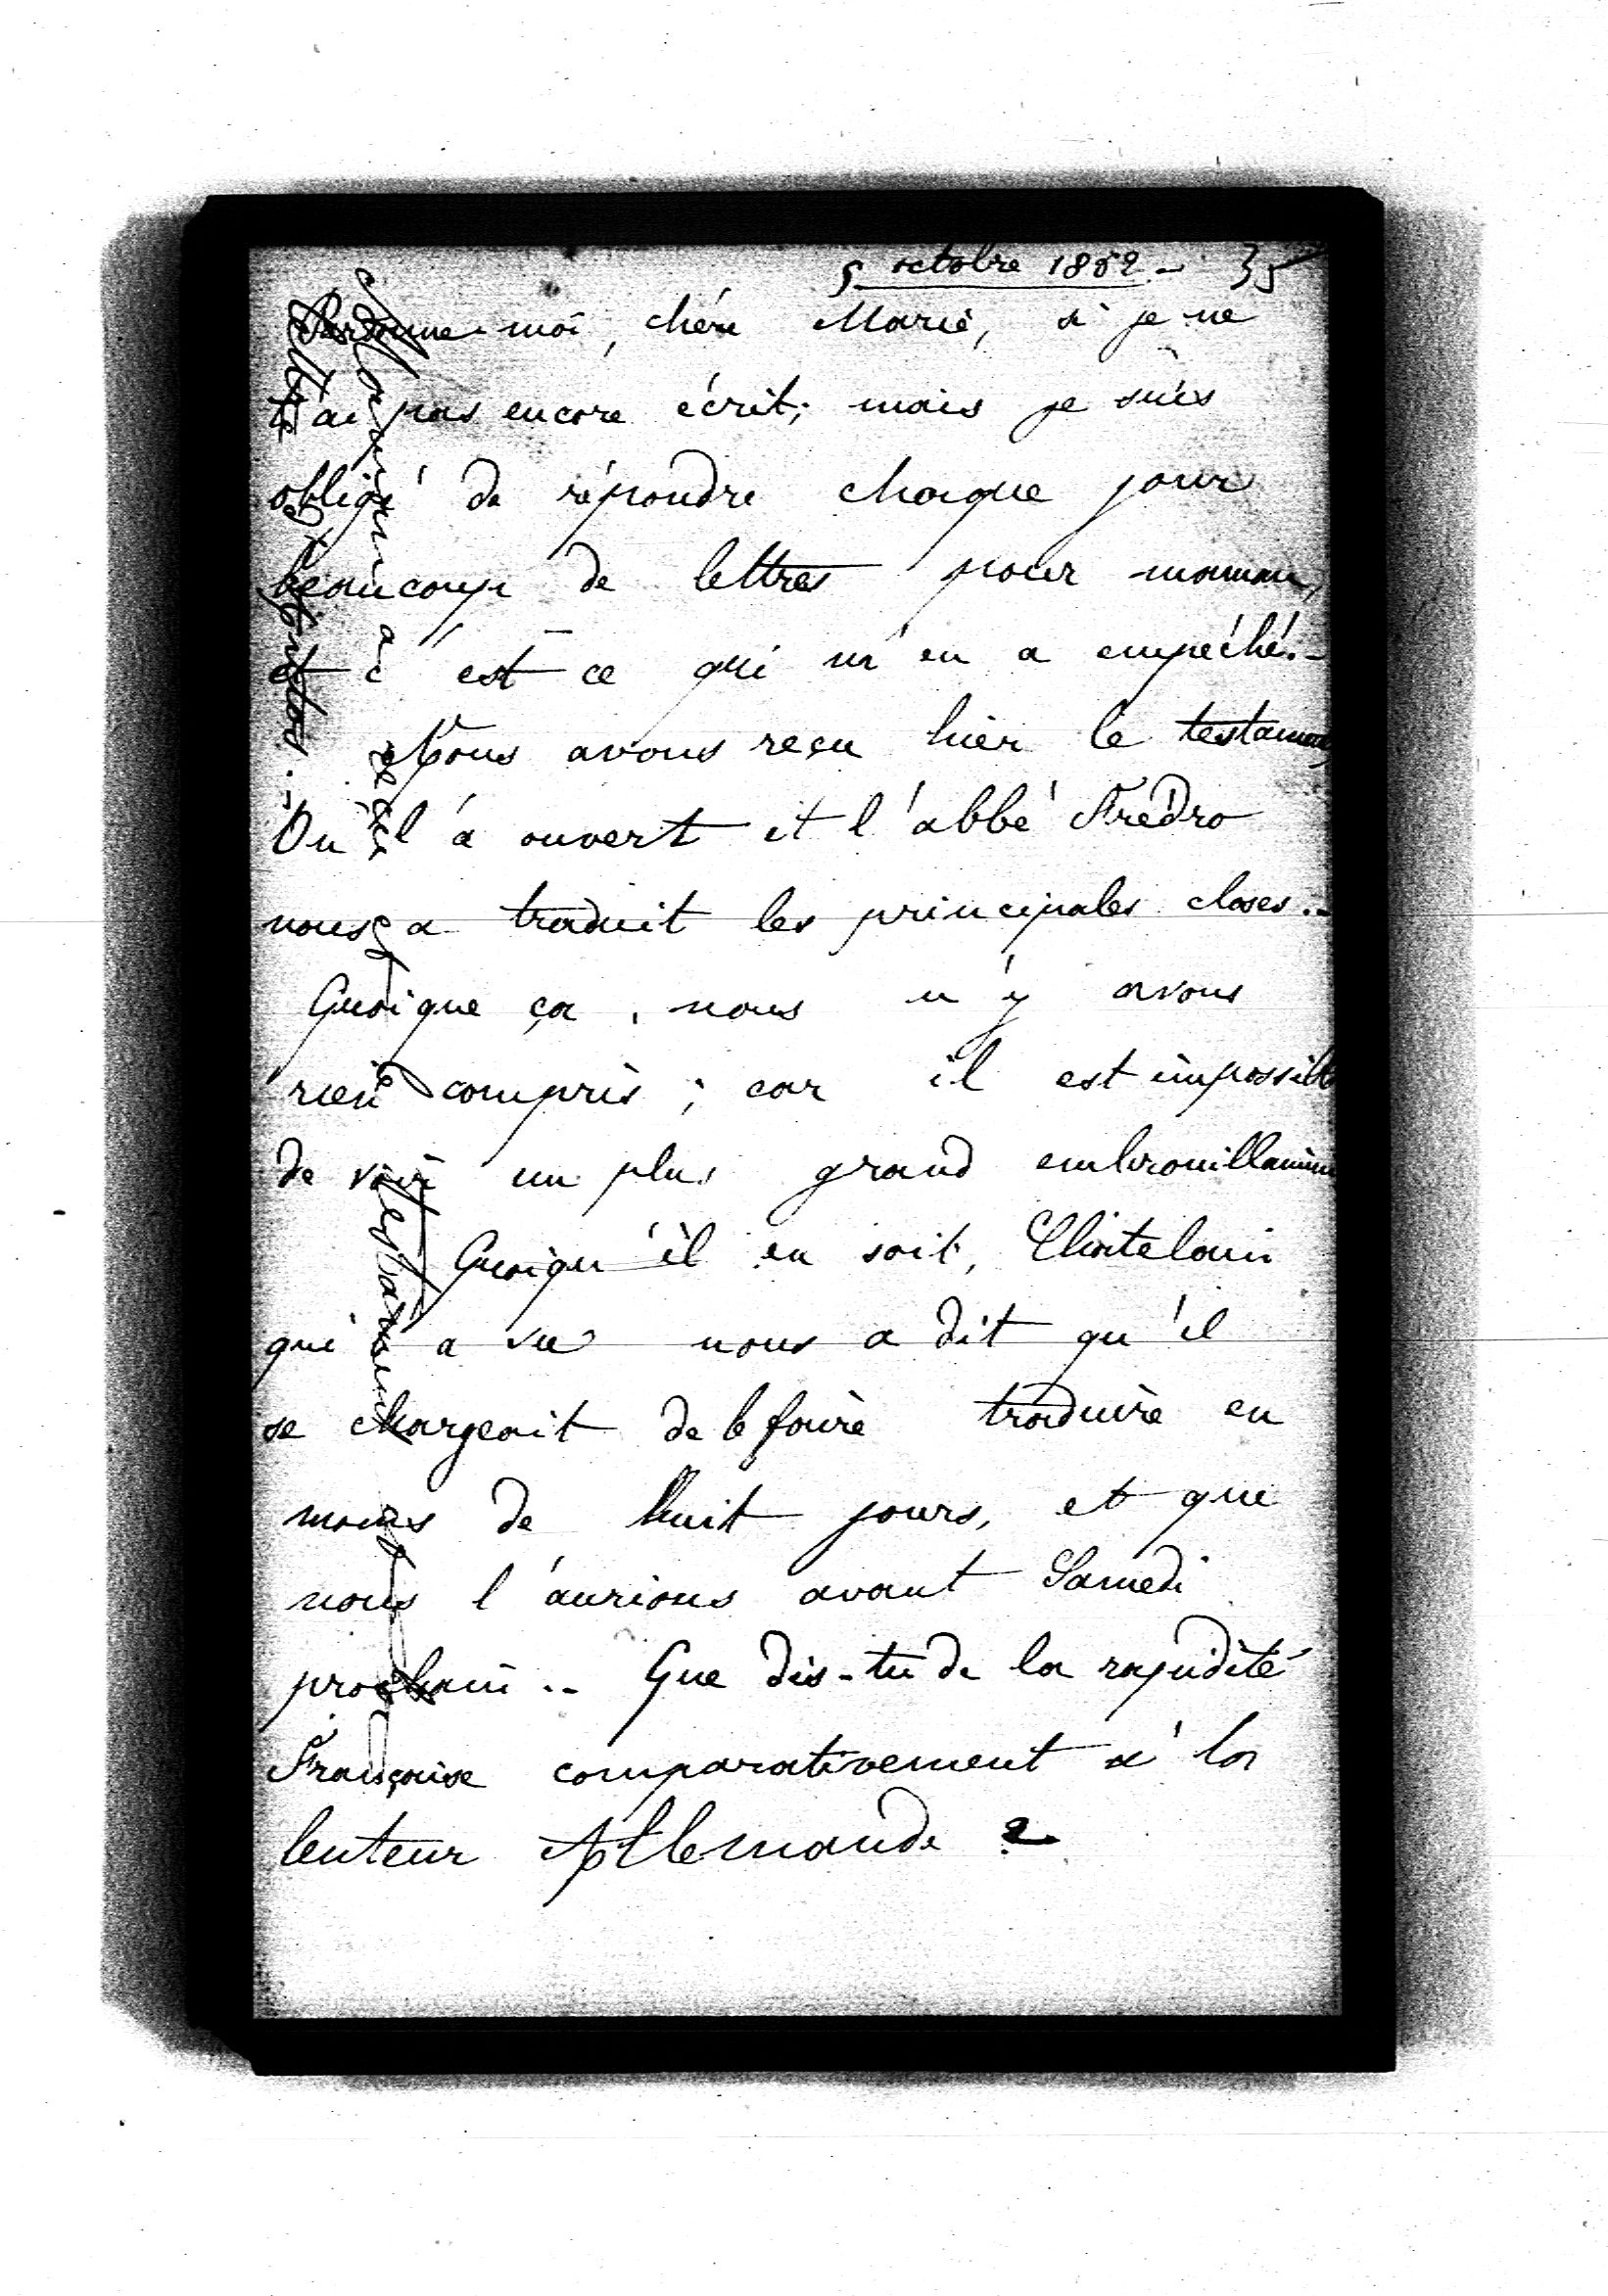 5 octobre 1852 - 35
Pardonne-moi, chère Marie, si je ne
t'ai pas encore écrit; mais je suis
obligé de répondre chaque jour
beaucoup de lettres pour maman,
et c'est ce qui m'en a empéché.-
Nous avons reçu hier le testament,
On l'a ouvert et l'abbé Frédro
nous a traduit les principales closes..
Quoique ça, nous n'y avons
rien compris; car il est impossible
de voir un plus grand embrouillamini
Quoiqu'il en soit, Chatelain
qui l'a vu nous a dit qu'il
se chargeait de le faire traduire en
moins de huit jours, et que
nous l'aurions avant Samedi
prochain.. Que dis-tu de la rapidité
Française comparativement à la
lenteur Allemande ?
a reçu
testament